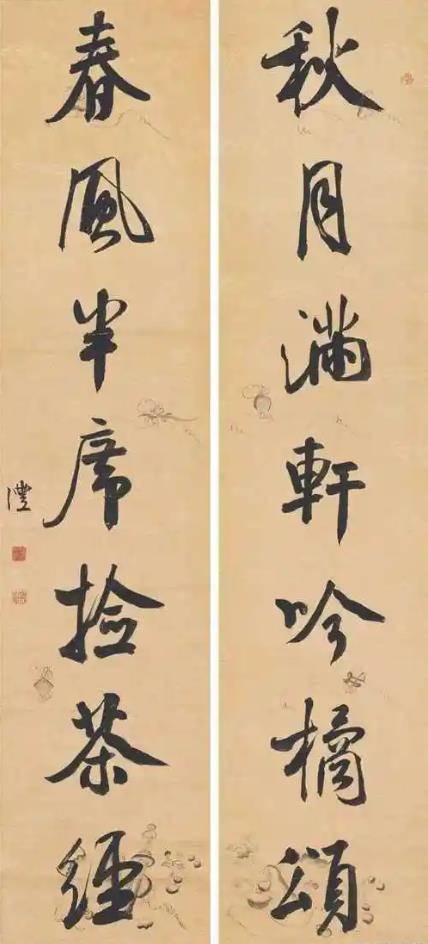 秋月滿軒吟橘頌
春風半席捡茶經
澧